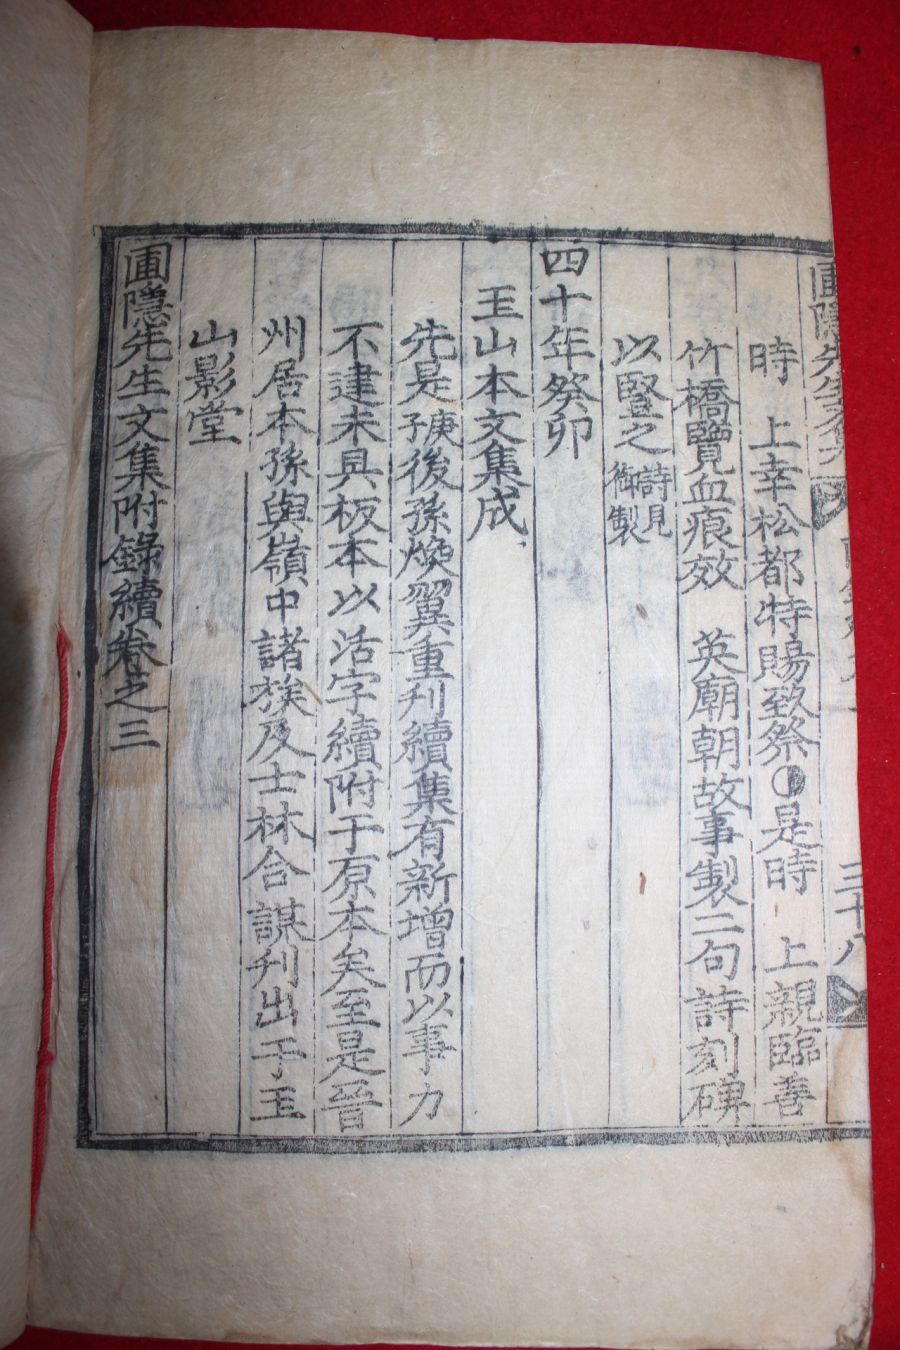 圃隱先生文集
三十八
時　上幸松都特賜致祭○是時　上親臨善
竹橋覽血痕效　英廟朝故事製二句詩刻碑
以豎之 詩見御製
四十年癸卯
玉山本文集成
先是庚子後孫煥翼重刊續集有新增而以事力
不逮未具板本以活字續附于原本矣至是晉
州居本孫與嶺中諸族及士林合謀刊出于玉
山影堂
圃隱先生文集附錄續卷之三